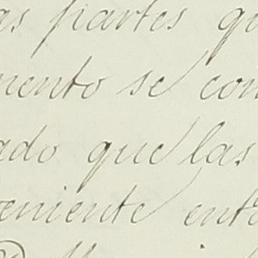 as partes qu
mento se con
ado que las
eniente ento